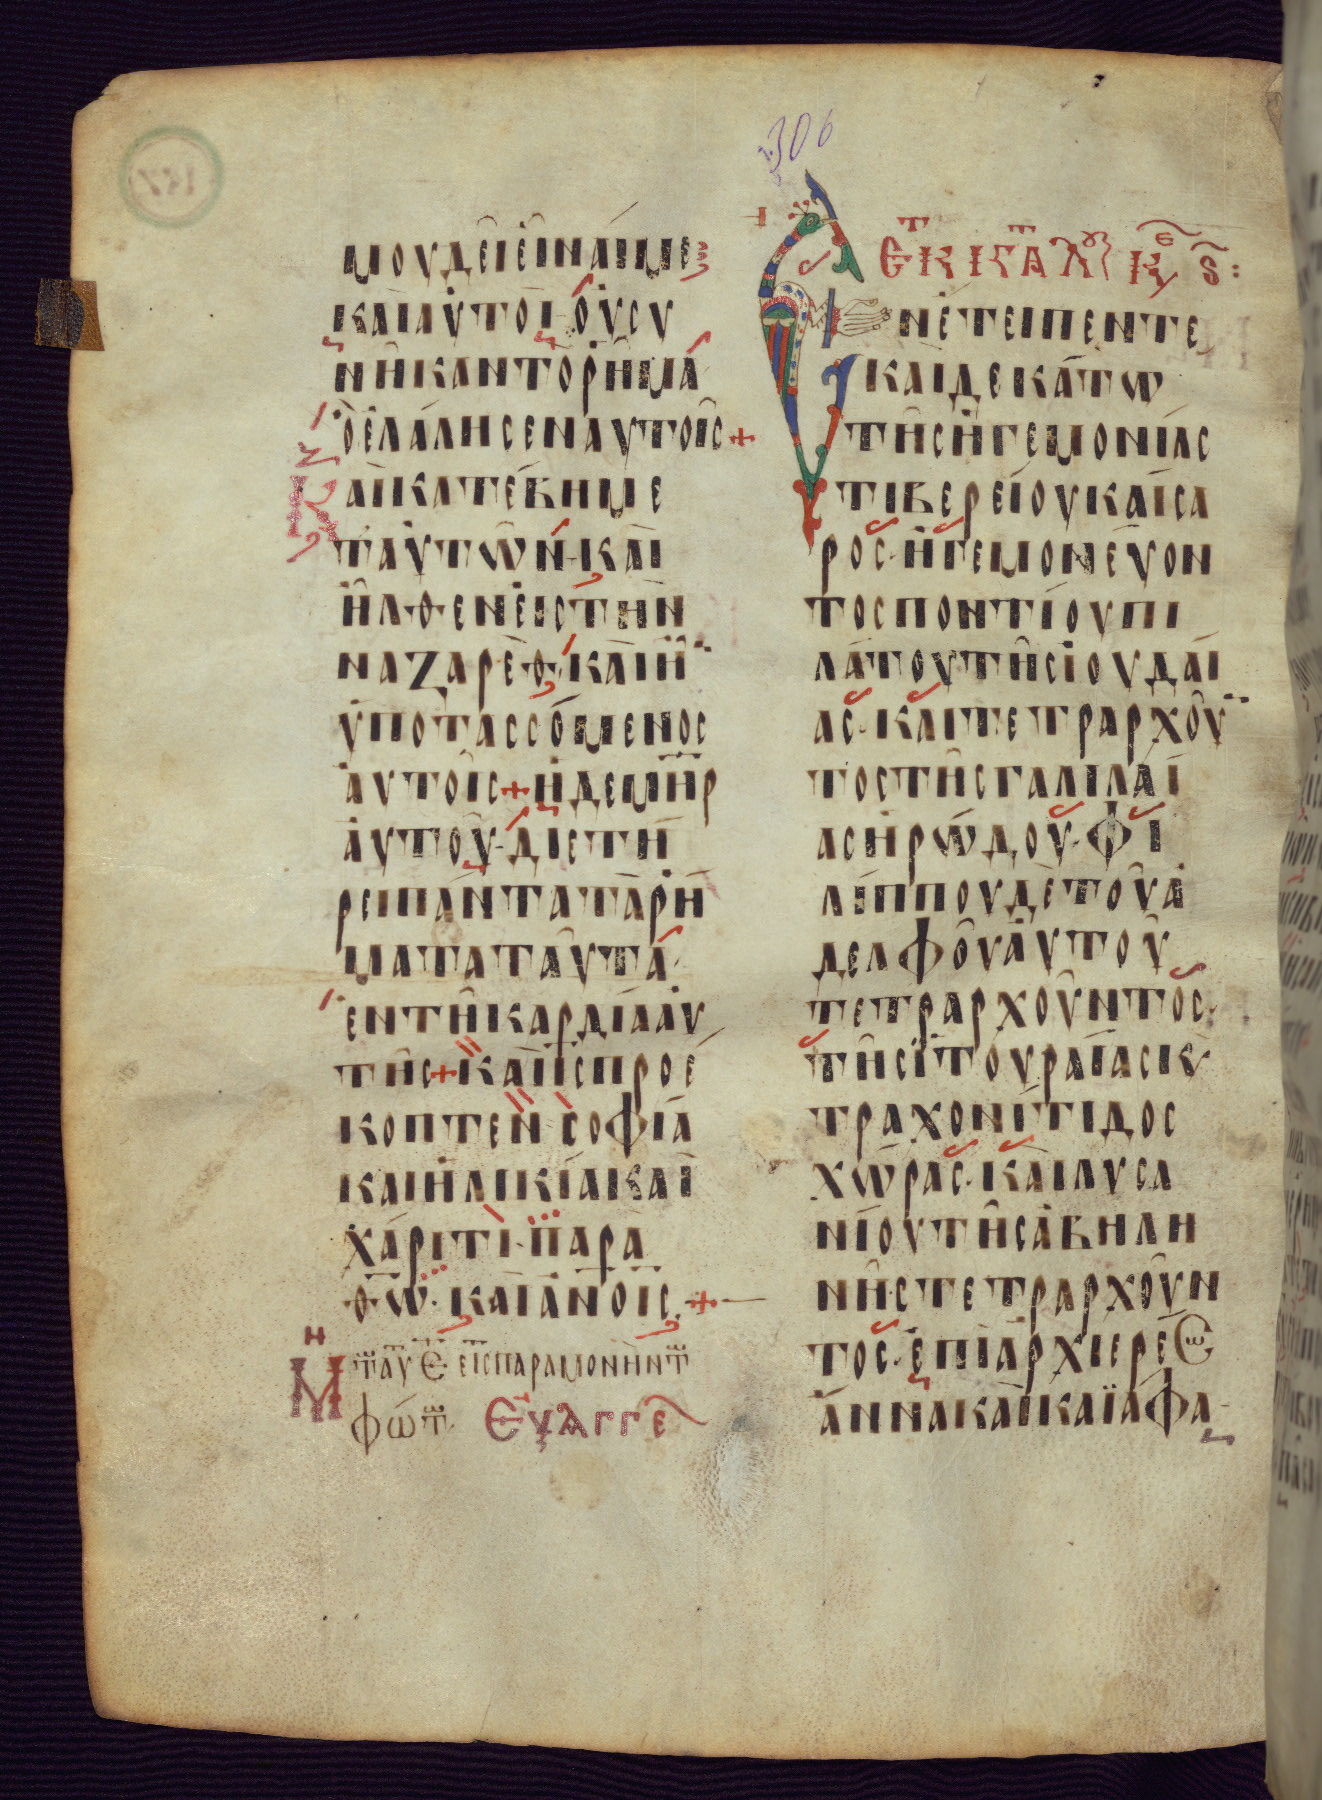 306
μου δεῖ εἶναί με
καὶ αὐτοὶ οὐ συ
νῆκαν τὸ ῥῆμα
ὃ ἐλάλησεν αὐτοῖς +
Καὶ κατέβη με
τ᾽ αὐτῶν· καὶ
ἦλθεν εἰς τὴν
ναζαρέθ· καὶ ἦν
ὑποτασσόμενος
αὐτοῖς + ἡ δὲ μηρ
αὐτοῦ· διετή
ρει πάντα τὰ ῥή
ματα ταῦτα·
ἐν τῇ καρδίᾳ αὐ
τῆς + καὶ ις προέ
κοπτεν· σοφίᾳ
καὶ ἡλικίᾳ καὶ
χάριτι· παρὰ
θω· καὶ ανοις· +
Μη τ αυ ε εἰς παραμονὴν τ
φώτ· Ευαγγε
εκ κατ λ κ ε ς :
ν ἔτει πεντε
καιδεκάτω
τῆς ἡγεμονίας
τιβερείου καίσα
ρος· ἡγεμονεύον
τος ποντίου πι
λάτου τῆς ἰουδαί
ας· καὶ τετραρχοῦν
τος τῆς γαλιλαί
ας ἡρώδου· φι
λίππου δὲ τοῦ ἀ
δελφοῦ αὐτοῦ
τετραρχοῦντος·
τῆς ἰτουραίας κ
τραχονίτιδος
χώρας· καὶ λυσα
νίου τῆς ἀβηλη
νῆς τετραρχοῦν
τος· ἐπὶ ἀρχιερέω
ἄννα καὶ καϊάφα·